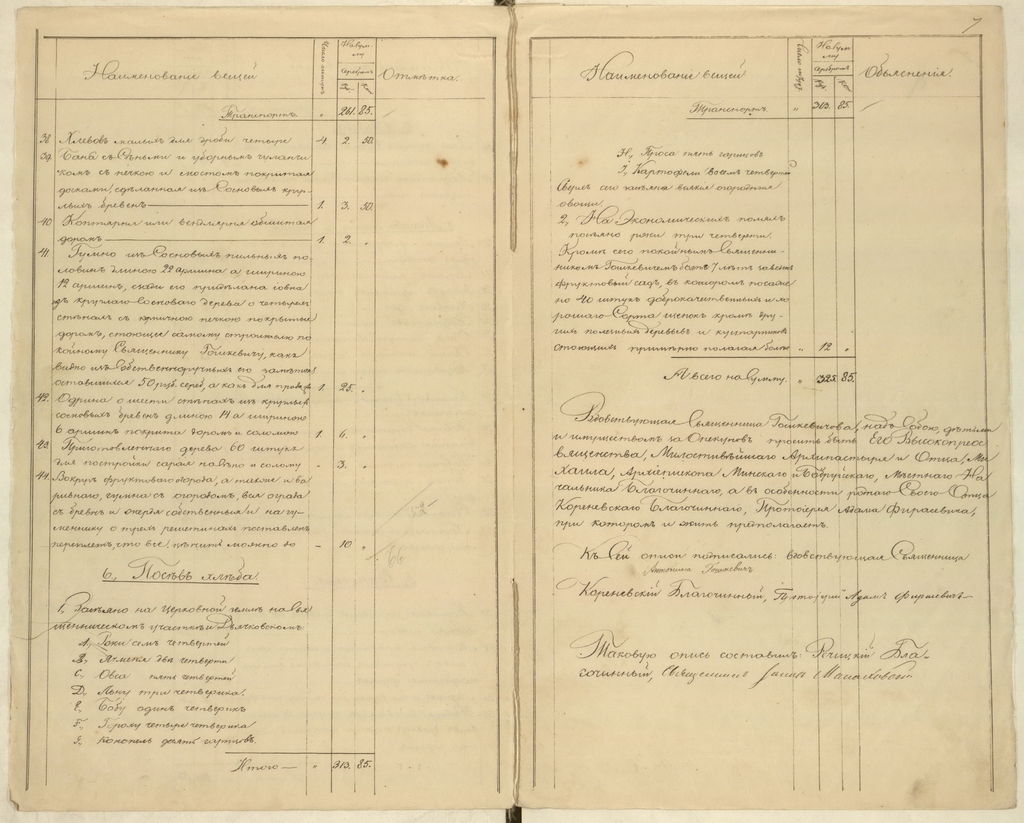 Наименованiе вещей
Число штукъ
На сумму
серебромъ
Руб. Коп.
Отмѣтка.
Транспортъ " 261. 85.
38. Хлѣвовъ малыхъ для дроби четыре 4 2. 50.
39. Баня съ Сѣньми и уборнымъ чуланчи-
комъ съ печкою и мостомъ покрытая
досками, сдѣланная изъ Сосновыхъ круг-
лыхъ бревенъ 1. 3. 50.
40. Коптярня или вендлярня обшитая
доромъ 1. 2. "
41. Гумно изъ Сосновыхъ пильныхъ по-
ловинъ длиною 22 аршина а шириною
12 аршинъ, сзади его придѣлана
съ круглаго Сосноваго дерева о четырехъ
стѣнахъ съ кирпичною печкою покрытые
доромъ, стоющее самому строителю по-
койному Священнику Гошкевичу, какъ
видно изъ Собственноручныхъ его замѣтокъ
оставшихся 50 руб. сереб, а какъ для 1. 25. "
42. Одрина о шести стѣнахъ изъ круглыхъ
сосновыхъ бревенъ длиною 14 а шириною
6 аршинъ покрыта доромъ и соломою 1. 6. "
43. Приготовленнаго дерева 60 штукъ
для постройки сарая на сѣно и солому - 3. "
44. Вокругъ фруктоваго а также и ва-
рывнаго, гумна съ огородомъ, вся ограда
съ бревенъ и собственныя и на гу-
меннику о трехъ решетинахъ поставленъ
переплетъ, что все, цѣнить можно до - 10. "
6., Посѣвъ хлѣба.
1. Засѣяно на Церковной землѣ на Свя-
щенническомъ участкѣ и Дьячковскомъ:
А., Ржи семъ четвертей
В., Ячменя два четверти
С., Овса пять четвертей
D., Льну три четверика.
Е., Бобу одинъ четверикъ
F., Гороху четыре четверика
G., Конопель девять гарнцовъ.
Итого — " 313. 85.
7
Наименованiе вещей
Число штукъ
На сумму
серебромъ
Руб. Коп.
Объясненiя.
Транспортъ " 313. 85.
Н., Проса пять гарнцовъ
I., Картофели восемъ четвертей
Сверхъ сего насѣяны всякiя огородныя
овощи.
2., На Экономическихъ поляхъ
посѣяно ржи три четверти.
Кромѣ сего покойнымъ Священни-
комъ Гошкевичемъ 7 лѣтъ заведенъ
фруктовый садъ, въ которомъ посажено
по 40 штукъ доброкачественныхъ и хо-
рошаго Сорта щепокъ кромѣ дру-
гихъ полезныхъ деревьевъ и кустарниковъ
стоющихъ примѣрно полагая болѣе " 12 "
А всего на Сумму. " 325. 85.
Вдовствующая Священница Гошкевичова, надъ Собою, дѣтьми
и имуществомъ за Опекуновъ проситъ быть Его Высокопрео-
священства, Милостивѣйшаго Архипастыря и Отца, Ми-
хаила, Архiепископа Минскаго и Бобруйскаго, Мѣстнаго На-
чальника Благочиннаго, а въ особенности роднаго Своего Отца
Кореневскаго Благочиннаго, Протоiерея Адама Фирасевича,
при которомъ и жить предполагаетъ.
Къ Сей описи подписались: вдовствующая Священница
Антонина Гошкевичъ
Кореневскiй Благочинный, Протоiерей Адамъ Фирасевичъ
Таковую опись составилъ: Рѣчицкiй Бла-
гочинный, Священникъ